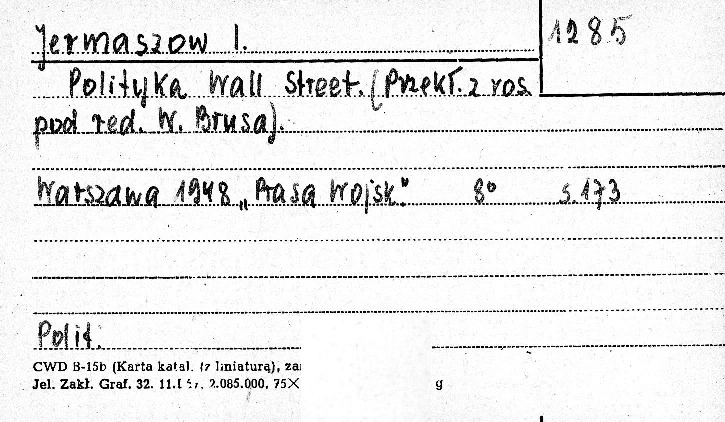 Jermaszow I.
1285
Polityka Wall Street. (Przekł. z ros.
pod red. W. Brusa).
Warszawa 1948 „Prasa Wojsk." 8° s. 173
Polit.
CWD B-15b (Karta katal. (z liniaturą), za
Jel. Zakł. Graf. 32. 11.I 2.085.000, 75X g